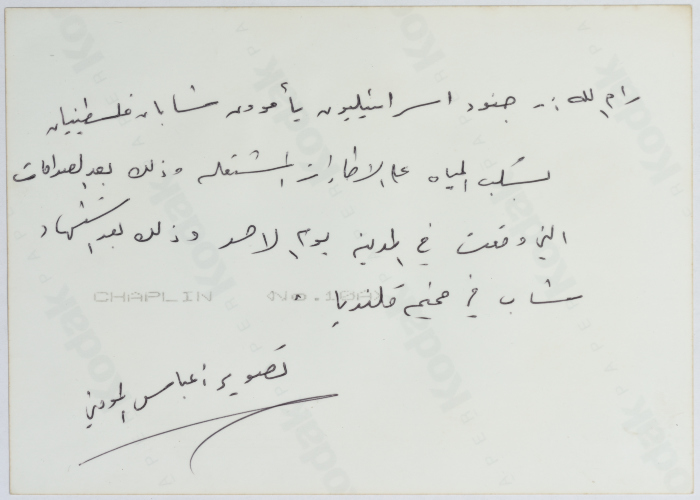 رام الله :- جنود اسرائيليون يأمرون شابان فلسطينيان
بسكب المياه على الاطارات المشتعله وذلك بعد الصدامات
التي وقعت في المدينه يوم الاحد وذلك بعد استشهاد
شاب في مخيم قلنديا .
CHAPLIN <No.10A>
تصوير : عباس المومني
Kodak
PAPER